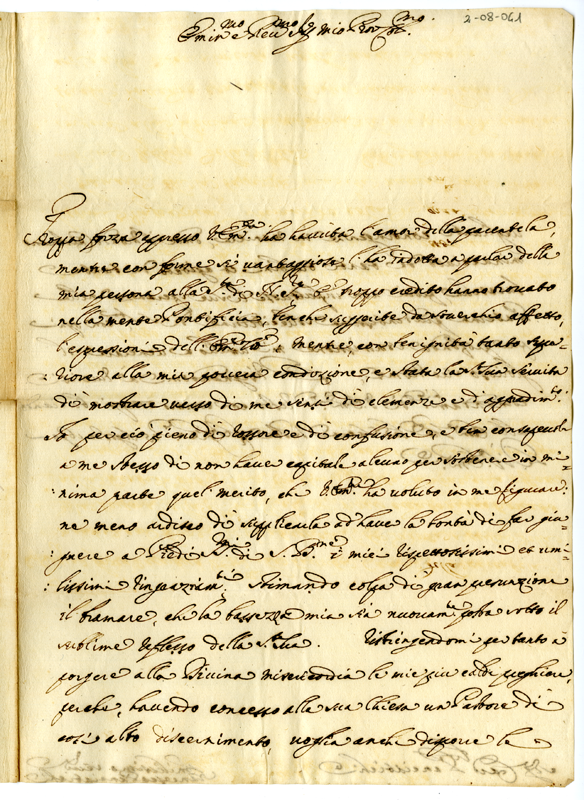 2-08-061
Emin.mo e Rev.mo Sig. mio Pron Col.mo
Troppa forza appresso V. Em.za ha havuta l'amor della parentela,
mentre con forme sì vantaggiose l'ha indotta a parlar della
mia persona alla S.tà di N. S.re e troppo credito hanno trovato
nella mente Pontificia, benche suggerite da soverchio affetto,
l'espressioni dell'Em.za V.ra, mentre, con benignità tanto supe=
riore alla mia povera condizione, è stata la S.tà Sua servita
di mostrare verso di me sensi di clemenza e d'aggradim.to.
Io perciò pieno di rossore e di confusione, e ben consapevole
a me stesso di non haver capitale alcuno per sostenere in mi=
:nima parte quel merito, che V. Em.za ha voluto in me figurare
ne meno ardisco di supplicarla ad haver la bontà di far giu=
:gnere a Piedi S.mi di S. B.ne i miei rispettosissimi et umi=
:lissimi ringraziam.ti. Stimando colpa di gran presunzione
il bramare, che la bassezza mia sia nuovam.te posta sotto il
sublime riflesso della S.tà Sua. Ristringendomi per tanto a
porgere alla Divina misericordia le mie più calde preghiere,
perche, havendo concesso alla sua Chiesa un Pastore di
così alto discernimento, voglia anche disporre le